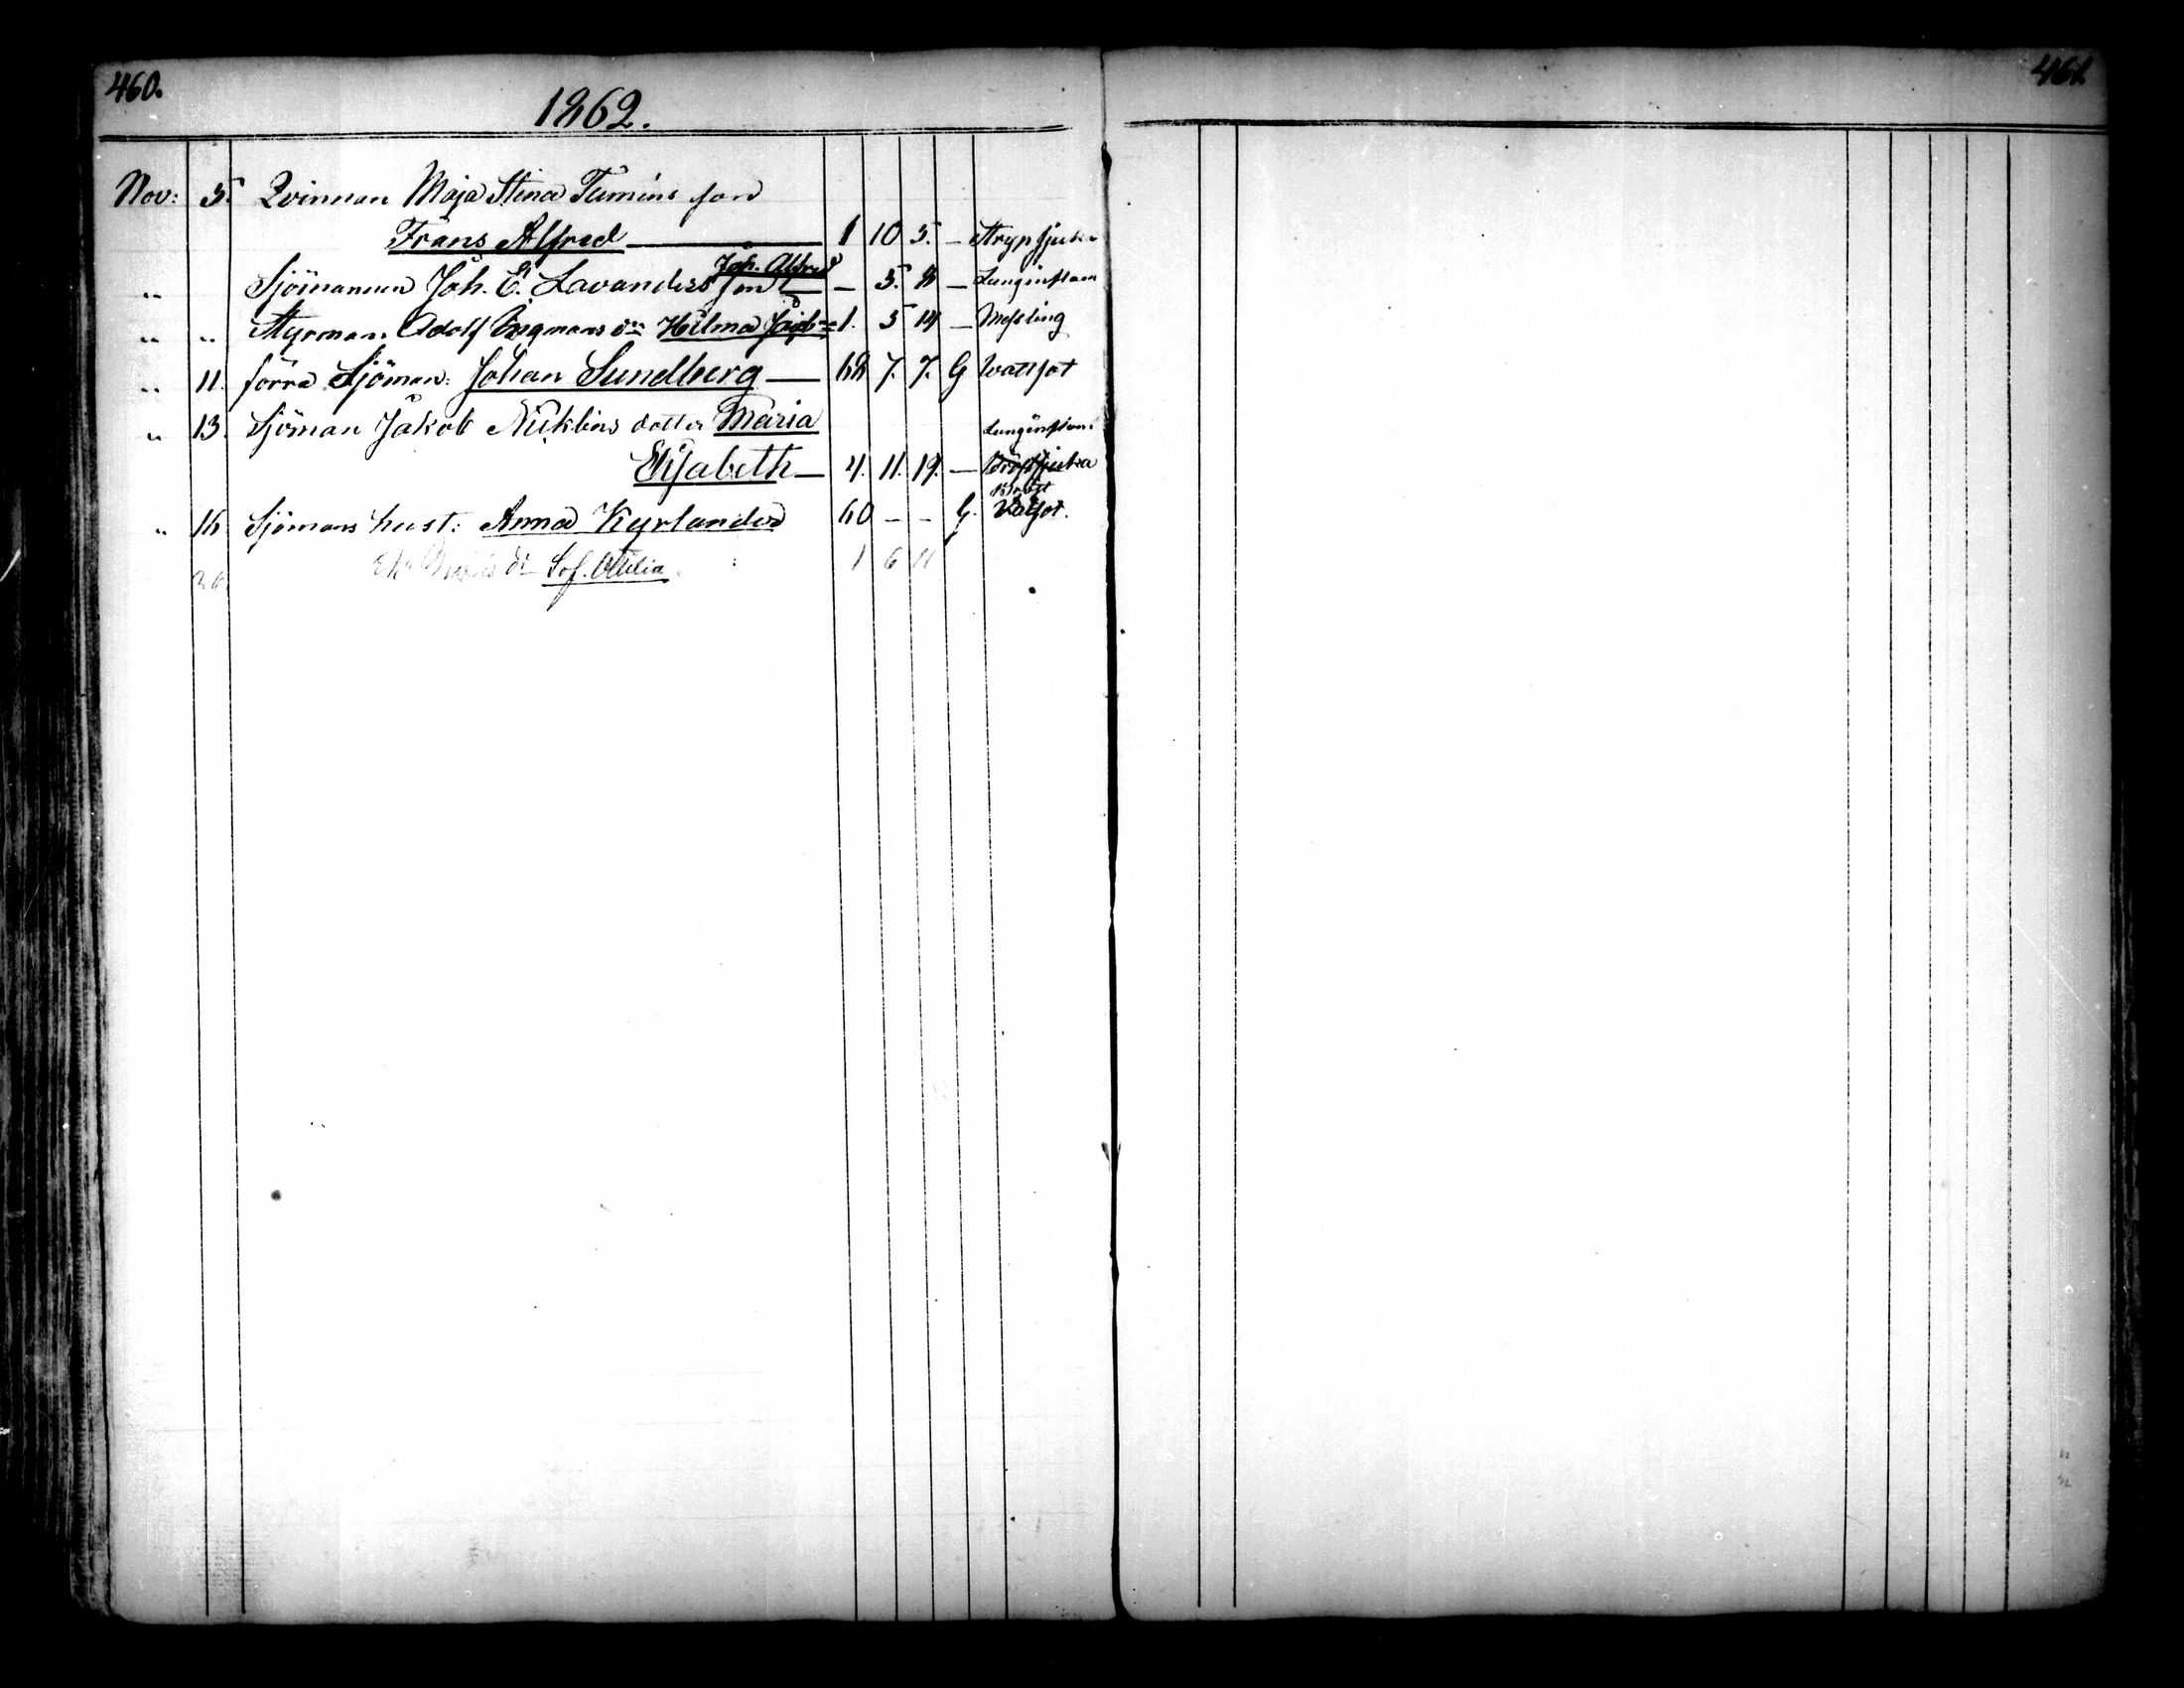 460.
461.
1862.
Nov: 5. Qvinnan Maja Stina Tamins son
Frans Alfred — 1 10 5. — Strypsjuka
Joh. Alfred
" Sjömannen Joh. E. Lavanders son — — 5. 8 — Lunginflam
" " Styrman Adolf Engmans dr Hilma 1. 5 14 — Messling
" 11. förra Sjöman: Johan Sundberg — 68 7. 7. G Wattsot
" 13. Sjöman Jakob Niiklins dotter Maria Lunginflam:
Elisabeth — 4. 11. 19. — Bröstsjuka
" 16 Sjömans hust: Anna Kyrlander 60 — — G. Vatsot.
26 dr Sof. Otilia 1 6 11